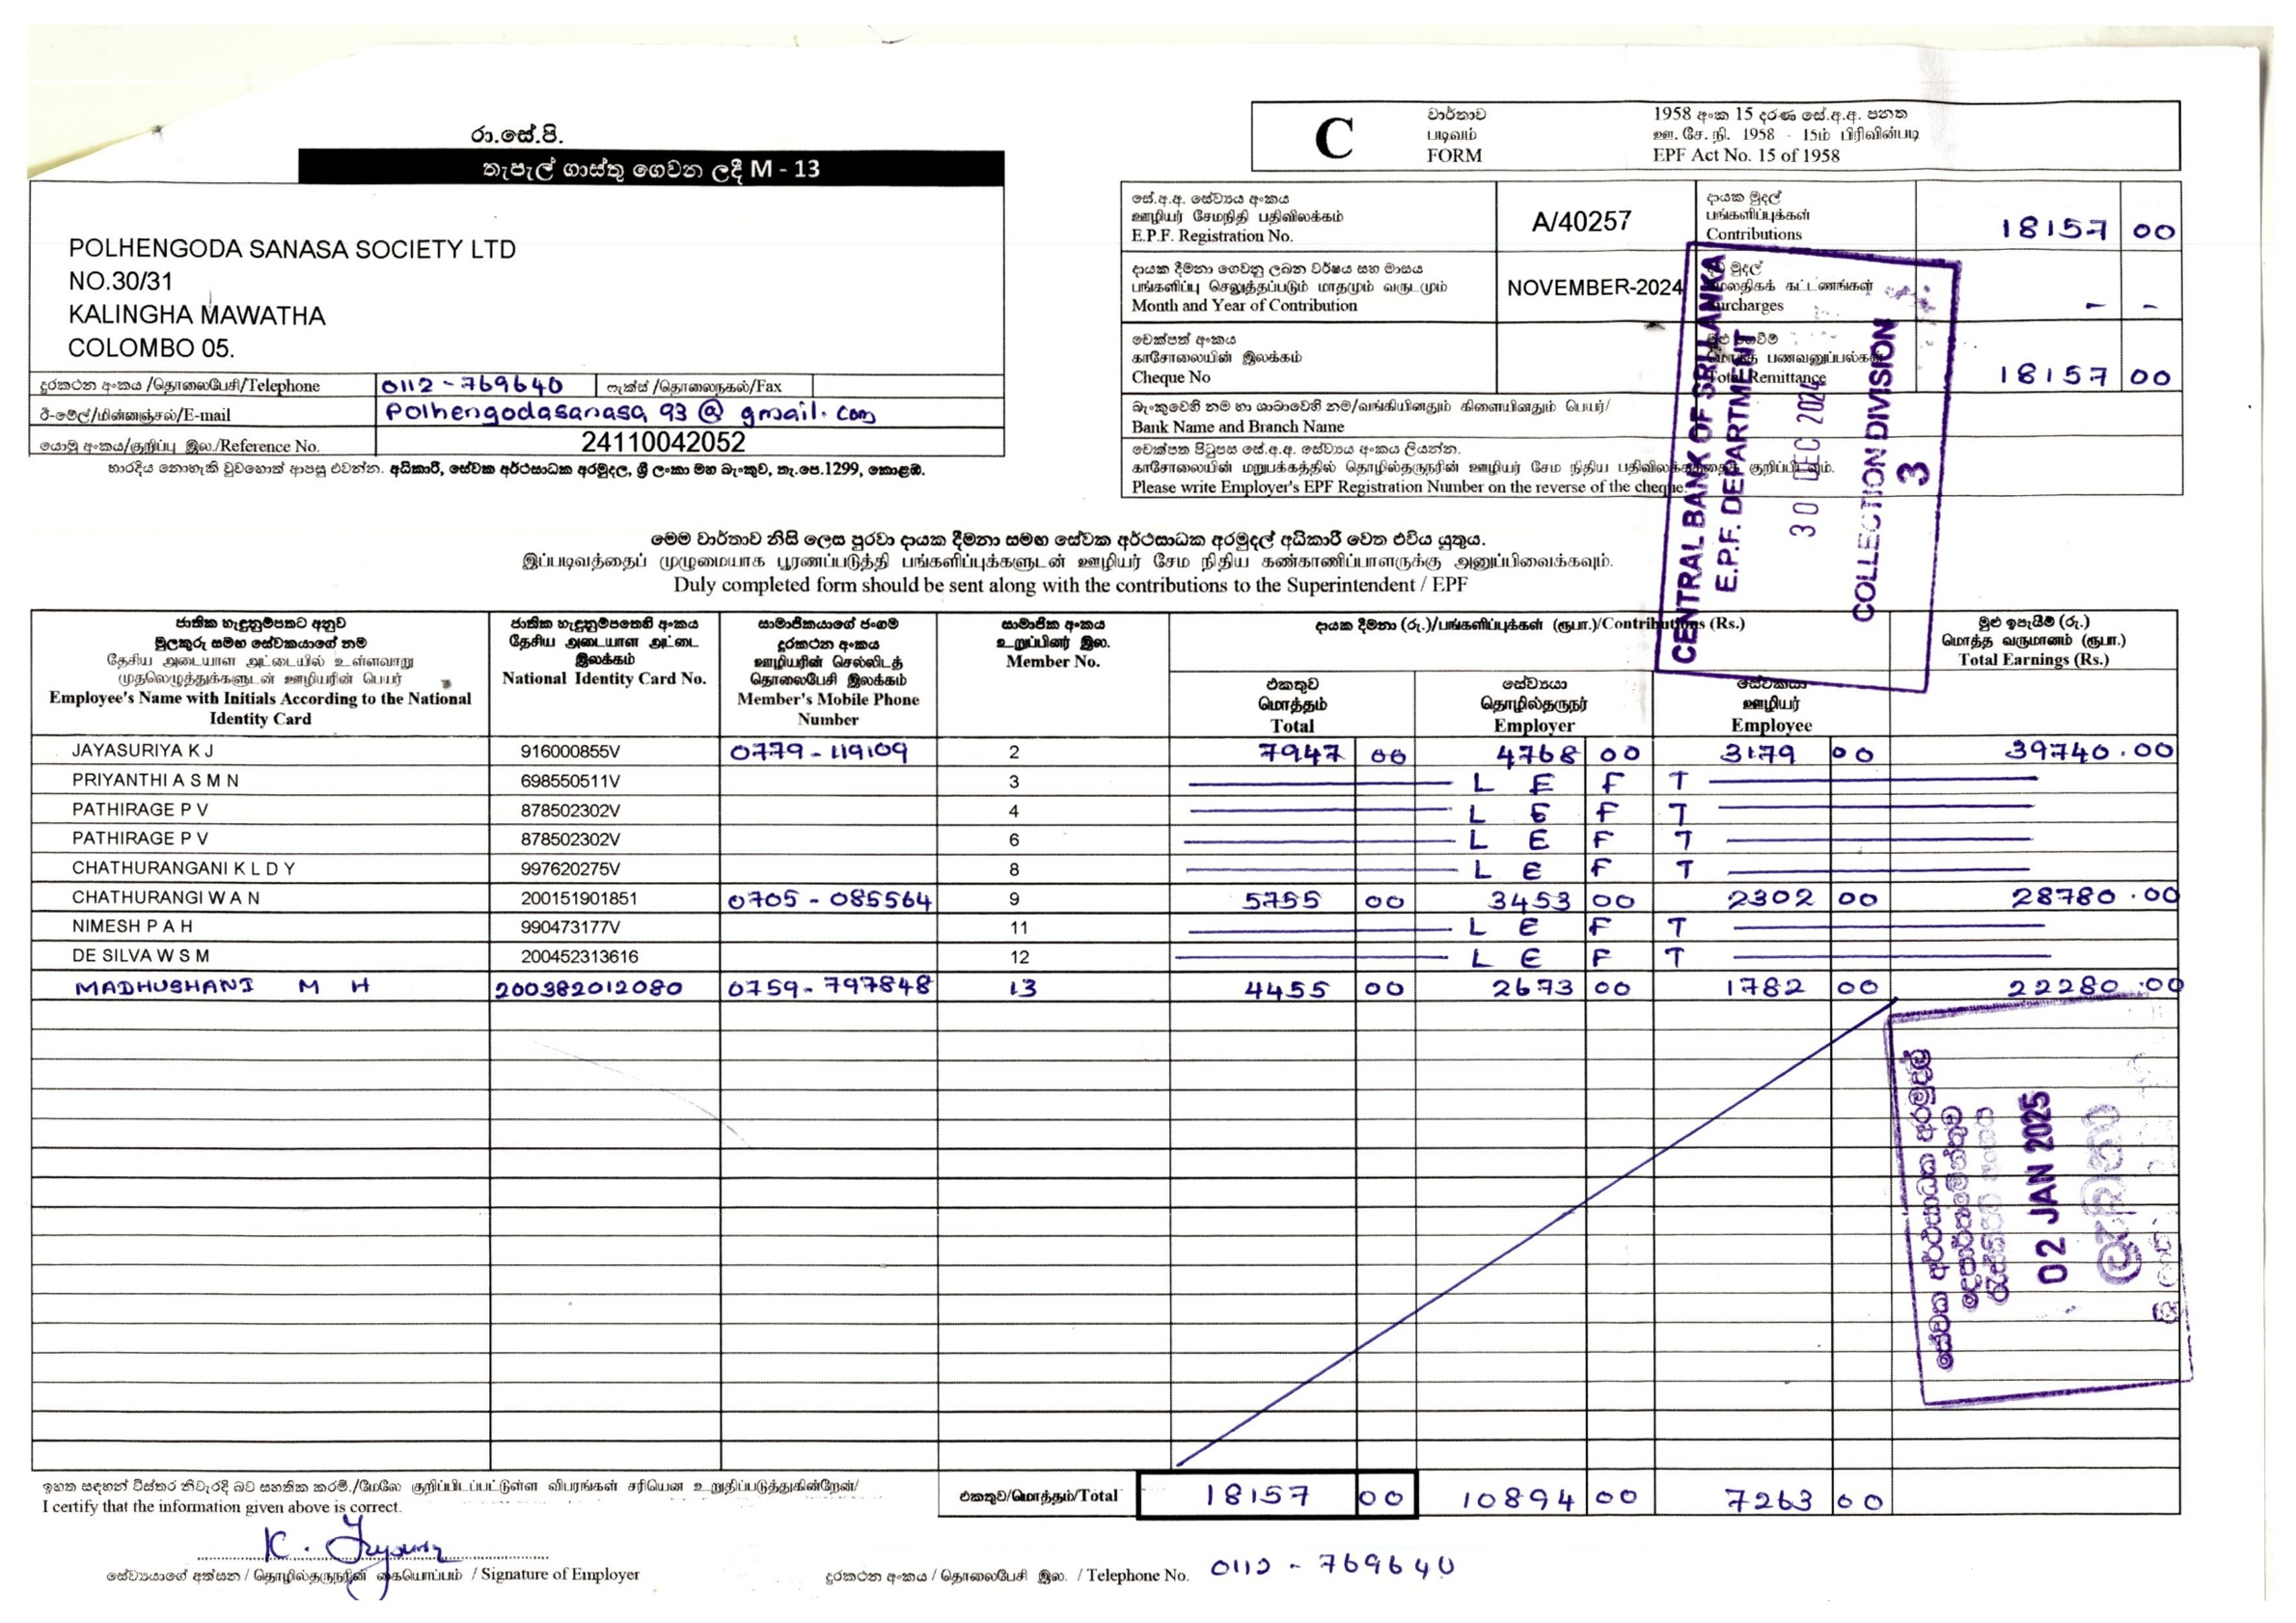 රා.සේ.පි.
තැපැල් ගාස්තු ගෙවන ලදී M - 13
POLHENGODA SANASA SOCIETY LTD
NO.30/31
KALINGHA MAWATHA
COLOMBO 05.
දුරකථන අංකය /தொலைபேசி/Telephone 0112 - 769640 ෆැක්ස් /தொலைநகல்/Fax
ඊ-මේල්/மின்னஞ்சல்/E-mail Polhengodasanasa 93 @ gmail.com
යොමු අංකය/குறிப்பு இல./Reference No. 24110042052
භාරදිය නොහැකි වුවහොත් ආපසු එවන්න. අධිකාරී, සේවක අර්ථසාධක අරමුදල, ශ්‍රී ලංකා මහ බැංකුව, තැ.පෙ.1299, කොළඹ.
C
වාර්තාව
படிவம்
FORM
1958 අංක 15 දරණ සේ.අ.අ. පනත
ஊ. சே. நி. 1958 - 15ம் பிரிவின்படி
EPF Act No. 15 of 1958
සේ.අ.අ. සේව්‍යය අංකය
ஊழியர் சேமநிதி பதிவிலக்கம்
E.P.F. Registration No. A/40257
දායක මුදල්
பங்களிப்புக்கள்
Contributions 18157 00
දායක දීමනා ගෙවනු ලබන වර්ෂය සහ මාසය
பங்களிப்பு செலுத்தப்படும் மாதமும் வருடமும்
Month and Year of Contribution NOVEMBER-2024
මුදල්
கட்டணங்கள்
urcharges - -
චෙක්පත් අංකය
காசோலையின் இலக்கம்
Cheque No
பணவனுப்பல்கள்
Total Remittance 18157 00
බැංකුවෙහි නම හා ශාඛාවෙහි නම/வங்கியினதும் கிளையினதும் பெயர்/
Bank Name and Branch Name
චෙක්පත පිටුපස සේ.අ.අ. සේව්‍යය අංකය ලියන්න.
காசோலையின் மறுபக்கத்தில் தொழில்தருநரின் ஊழியர் சேம நிதிய குறிப்பிடவும்.
Please write Employer's EPF Registration Number on the reverse of the cheque.
CENTRAL BANK OF SRI LANKA
E.P.F. DEPARTMENT
30 DEC 2024
COLLECTION DIVISION
3
මෙම වාර්තාව නිසි ලෙස පුරවා දායක දීමනා සමඟ සේවක අර්ථසාධක අරමුදල් අධිකාරී වෙත එවිය යුතුය.
இப்படிவத்தைப் முழுமையாக பூரணப்படுத்தி பங்களிப்புக்களுடன் ஊழியர் சேம நிதிய கண்காணிப்பாளருக்கு அனுப்பிவைக்கவும்.
Duly completed form should be sent along with the contributions to the Superintendent / EPF
ජාතික හැඳුනුම්පතට අනුව
මුලකුරු සමඟ සේවකයාගේ නම
தேசிய அடையாள அட்டையில் உள்ளவாறு
முதலெழுத்துக்களுடன் ஊழியரின் பெயர்
Employee's Name with Initials According to the National
Identity Card
ජාතික හැඳුනුම්පතෙහි අංකය
தேசிய அடையாள அட்டை
இலக்கம்
National Identity Card No.
සාමාජිකයාගේ ජංගම
දුරකථන අංකය
ஊழியரின் செல்லிடத்
தொலைபேசி இலக்கம்
Member's Mobile Phone
Number
සාමාජික අංකය
உறுப்பினர் இல.
Member No.
දායක දීමනා (රු.)/பங்களிப்புக்கள் (ரூபா.)/Contributions (Rs.)
එකතුව
மொத்தம்
Total
සේව්‍යයා
தொழில்தருநர்
Employer
සේවකයා
ஊழியர்
Employee
මුළු ඉපැයීම් (රු.)
மொத்த வருமானம் (ரூபா.)
Total Earnings (Rs.)
JAYASURIYA K J 916000855V 0779-119109 2 7947 00 4768 00 3179 00 39740.00
PRIYANTHI A S M N 698550511V 3 L E F T
PATHIRAGE P V 878502302V 4 L E F T
PATHIRAGE P V 878502302V 6 L E F T
CHATHURANGANI K L D Y 997620275V 8 L E F T
CHATHURANGI W A N 200151901851 0705 - 085564 9 5755 00 3453 00 2302 00 28780.00
NIMESH P A H 990473177V 11 L E F T
DE SILVA W S M 200452313616 12 L E F T
MADHUSHANI M H 200382012080 0759-797848 13 4455 00 2673 00 1782 00 22280.00
සේවක අර්ථසාධක අරමුදල්
දෙපාර්තමේන්තුව
02 JAN 2025
ඉහත සඳහන් විස්තර නිවැරදි බව සහතික කරමි./மேலே குறிப்பிடப்பட்டுள்ள விபரங்கள் சரியென உறுதிப்படுத்துகின்றேன்/
I certify that the information given above is correct.
එකතුව/மொத்தம்/Total 18157 00 10894 00 7263 00
සේව්‍යයාගේ අත්සන / தொழில்தருநரின் கையொப்பம் / Signature of Employer
දුරකථන අංකය / தொலைபேசி இல. / Telephone No. 0112 - 769640